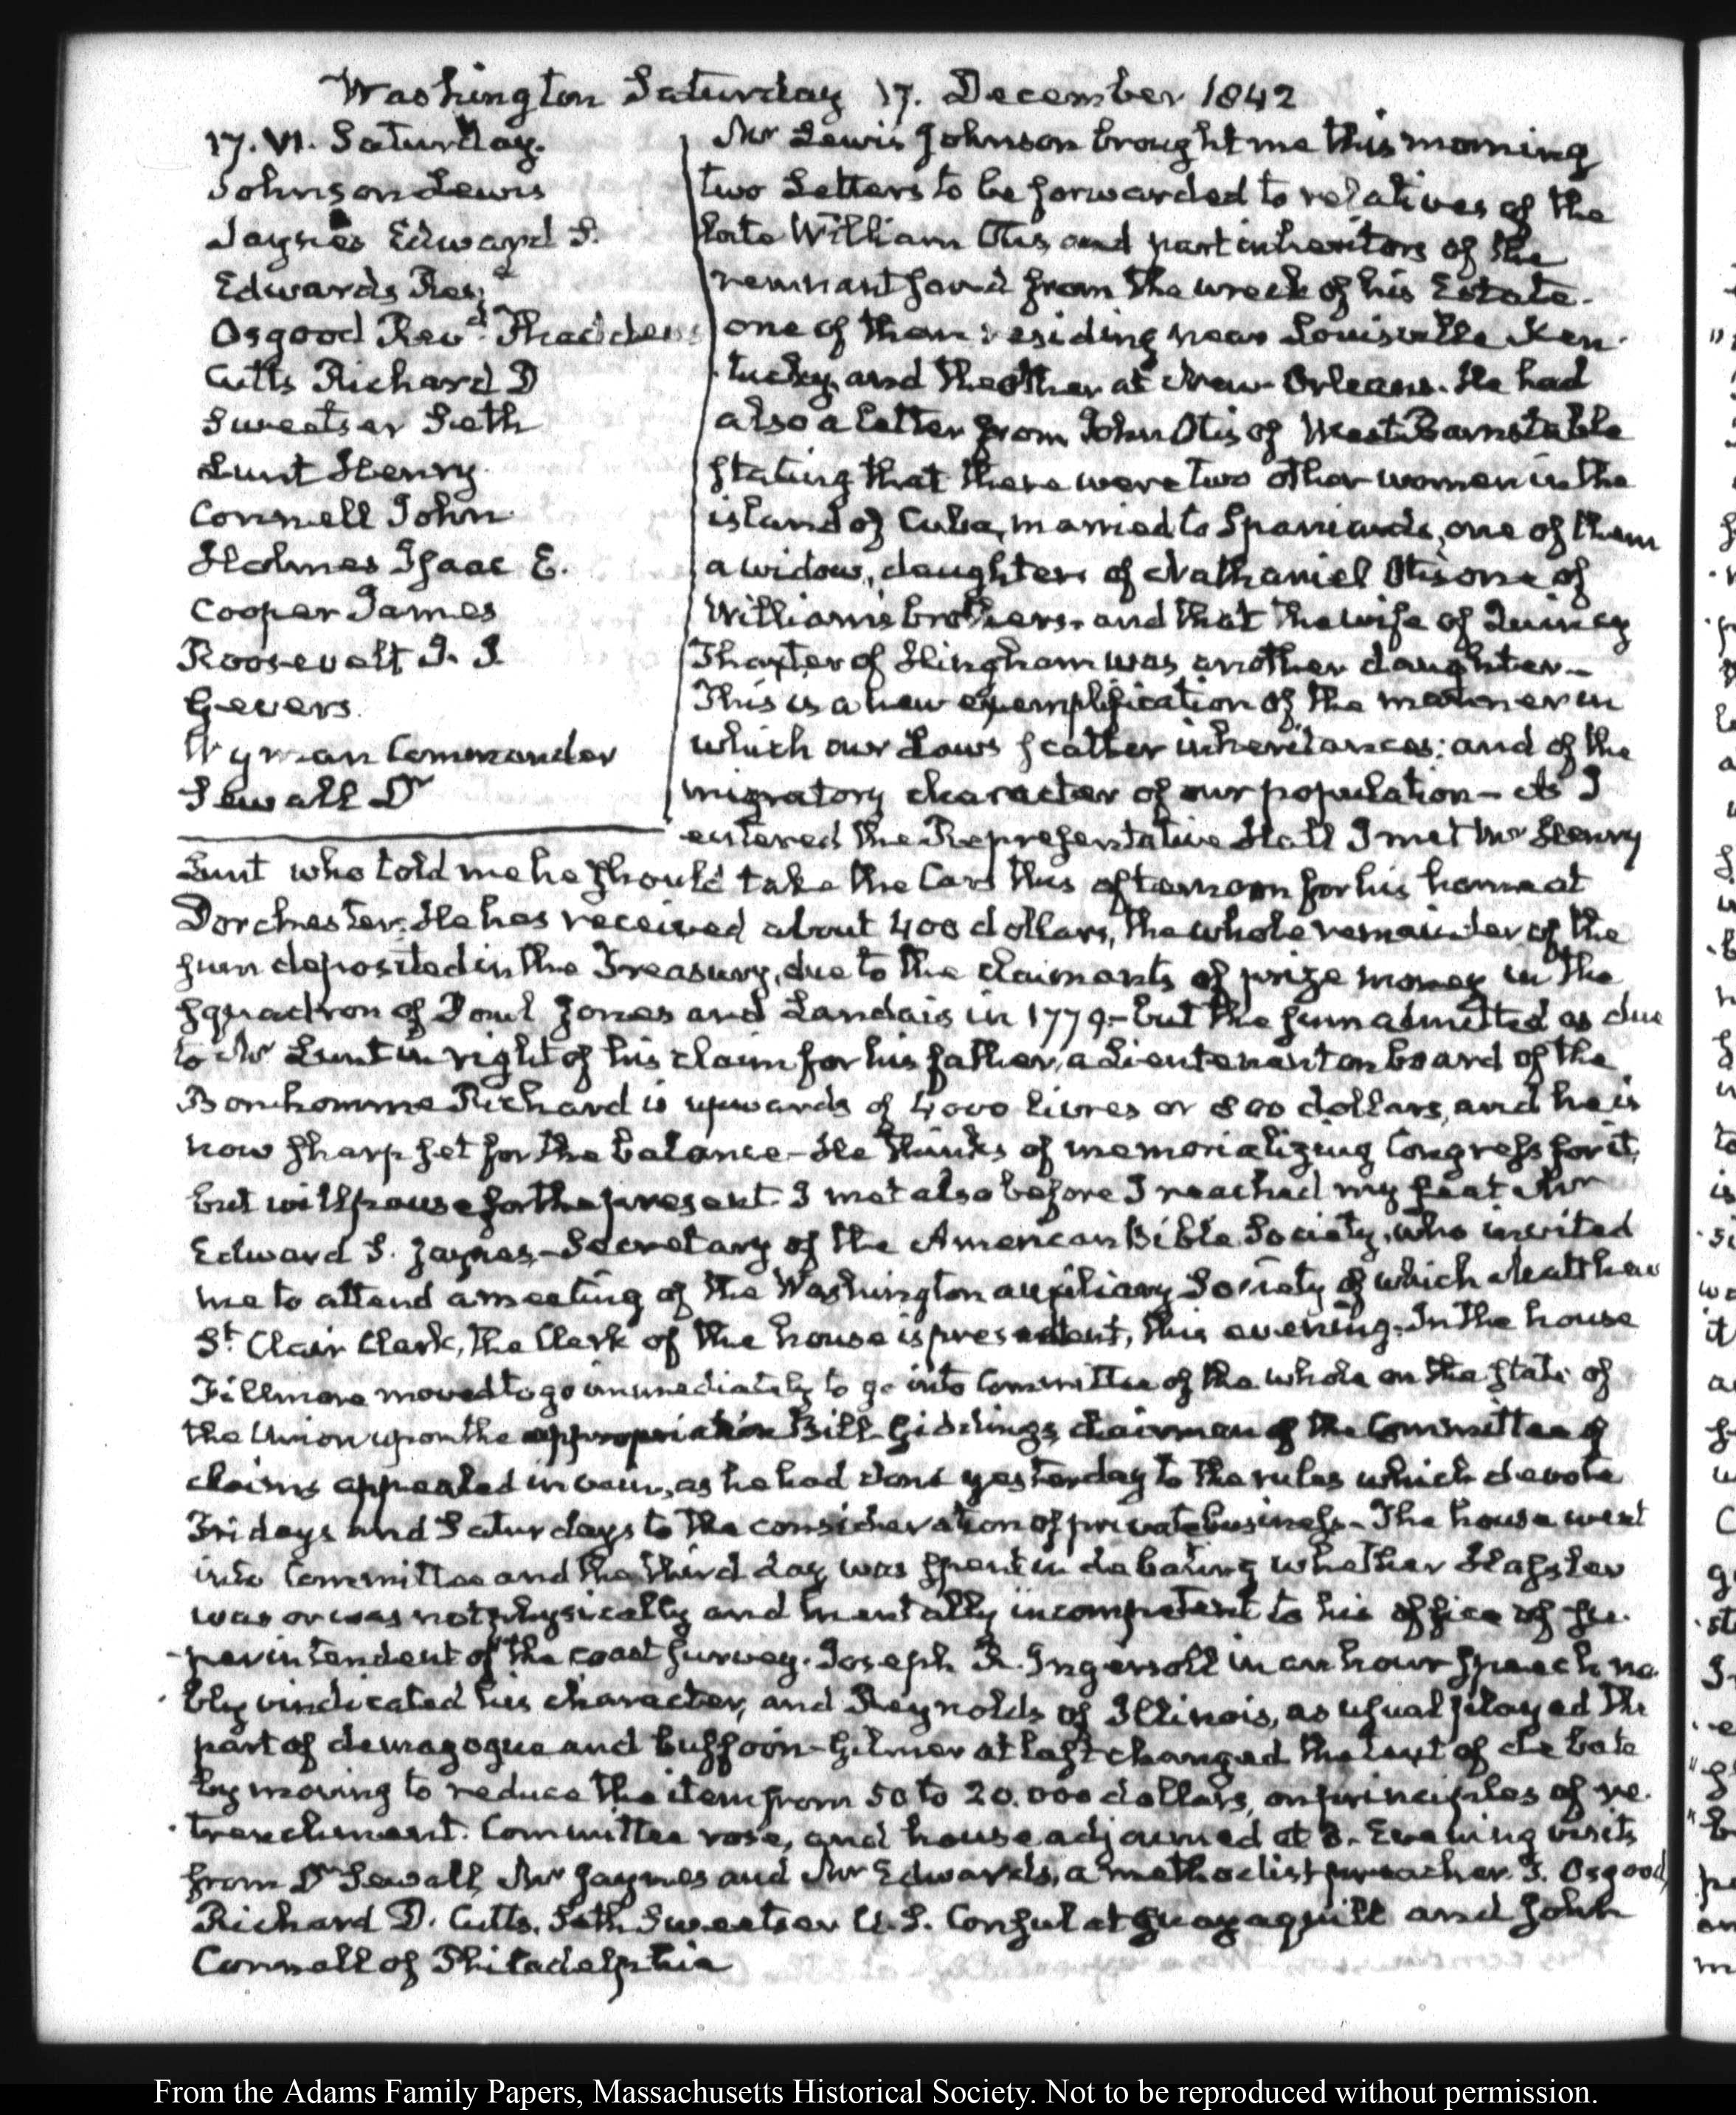 Washington Saturday 17. December 1842
17. VI. Saturday.
Johnson Lewis
Jaynes Edward S.
Edwards Revd
Osgood Revd. Thaddeus
Cutts Richard D
Sweetser Seth
Lunt Henry
Connell John
Holmes Isaac E.
Cooper James
Roosevelt J. I.
Gevers
Wyman Commander
Sewall Dr
Mr Lewis Johnson brought me this morning
two Letters to be forwarded to relatives of the
late William Otis and part inheritors of the
remnant saved from the wreck of his Estate.
one of them residing near Louisville Ken-
tucky, and the other at New-Orleans. He had
also a letter from John Otis of West Barnstable
stating that there were two other women in the
island of Cuba, married to Spaniards, one of them
a widow, daughters of Nathaniel Otis one of
William's brothers, and that the wife of Quincy
Thaxter of Hingham was another daughter—
This is a new exemplification of the manner in
which our Laws scatter inheritances; and of the
migratory character of our population— As I
entered the Representative Hall I met Mr Henry
Lunt who told me he should take the Cars this afternoon for his home at
Dorchester. He has received about 400 dollars, the whole remainder of the
sum deposited in the Treasury, due to the claimants of prize money in the
squadron of Paul Jones and Landais in 1779.— but the sum admitted as due
to Mr Lunt in right of his claim for his father, a Lieutenant on board of the
Bonhomme Richard is upwards of 4000 livres or 800 dollars, and he is
now sharp set for the balance— He thinks of memorializing Congress for it,
but will pause for the present. I met also before I reached my seat Mr
Edward S. Jaynes— Secretary of the American Bible Society, who invited
me to attend a meeting of the Washington auxiliary Society of which Matthew
St. Clair Clark, the Clerk of the house is president, this evening. In the house
Fillmore moved to go immediately to go into Committee of the whole on the state of
the Union upon the appropriation Bill. Giddings, chairman of the Committee of
claims appealed in vain, as he had done yesterday to the rules which devote
Fridays and Saturdays to the consideration of private business— The house went
into Committee and the third day was spent in debating whether Hassler
was or was not physically and mentally incompetent to his office of su-
-perintendent of the coast survey. Joseph R. Ingersoll in an hour speech no-
-bly vindicated his character, and Reynolds of Illinois, as usual played the
part of demagogue and buffoon— Gilmer at last changed the text of debate
by moving to reduce the item from 50 to 20.000 dollars, on principles of re-
-trenchment. Committee rose, and house adjourned at 3. Evening visits
from Dr Sewall, Mr Jaynes and Mr Edwards, a methodist preacher. T. Osgood,
Richard D. Cutts, Seth Sweetser U.S. Consul at Guayaquill and John
Connell of Philadelphia
From the Adams Family Papers, Massachusetts Historical Society. Not to be reproduced without permission.